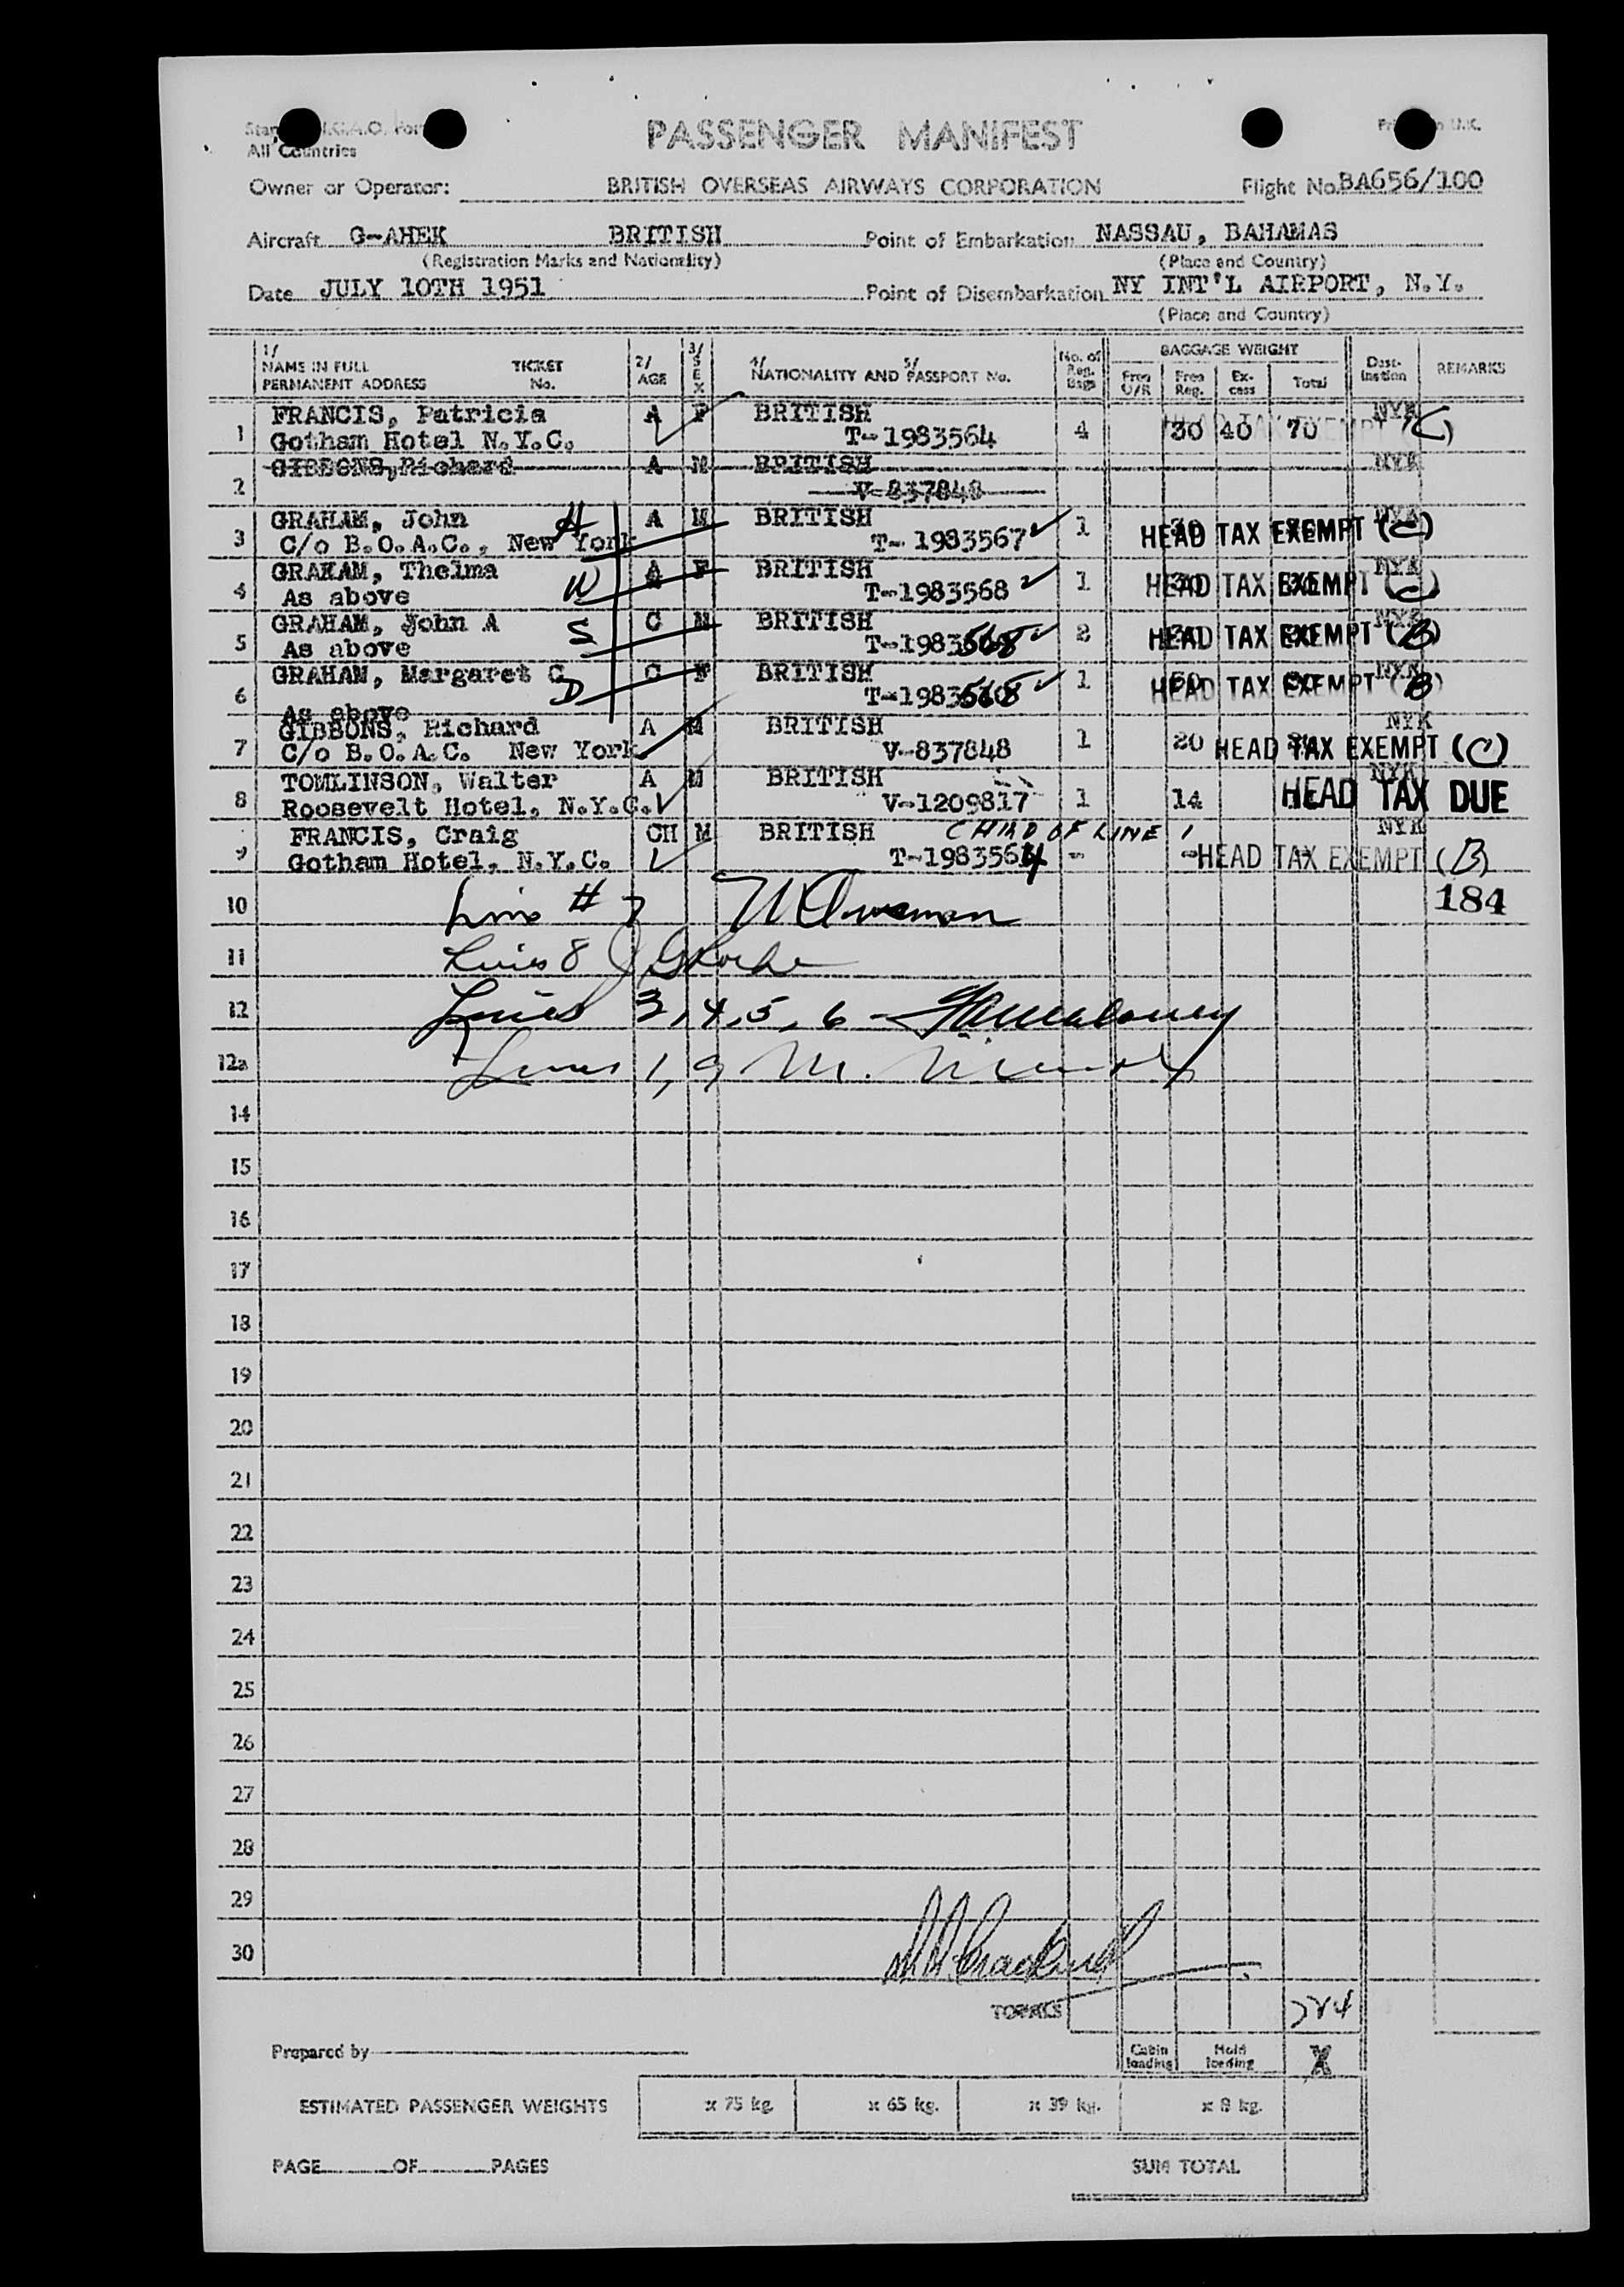 All Countries
PASSENGER MANIFEST
Owner or Operator: BRITISH OVERSEAS AIRWAYS CORPORATION Flight No. BA656/100
Aircraft G-AHEK BRITISH Point of Embarkation NASSAU, BAHAMAS
(Registration Marks and Nationality) (Place and Country)
Date JULY 10TH 1951 Point of Disembarkation NY INT'L AIRPORT, N.Y.
(Place and Country)
1/ NAME IN FULL PERMANENT ADDRESS TICKET No. 2/ AGE 3/ SEX 4/ NATIONALITY AND 5/ PASSPORT No. No. of Reg. Bags BAGGAGE WEIGHT Free U/R Free Reg. Ex-cess Total Dest-ination REMARKS
1 FRANCIS, Patricia A F BRITISH NYK
Gotham Hotel N.Y.C. T-1983564 4 30 40 70 HEAD TAX EXEMPT (C)
2 GIBBONS, Richard A M BRITISH NYK
V-837848
3 GRAHAM, John H A M BRITISH NYK
C/o B.O.A.C., New York T-1983567 1 HEAD TAX EXEMPT (C)
4 GRAHAM, Thelma W A F BRITISH NYK
As above T-1983568 1 HEAD TAX EXEMPT (C)
5 GRAHAM, John A S C M BRITISH NYK
As above T-1983568 2 HEAD TAX EXEMPT (B)
6 GRAHAM, Margaret C D C F BRITISH NYK
As above T-1983568 1 HEAD TAX EXEMPT (B)
7 GIBBONS, Richard A M BRITISH NYK
C/o B.O.A.C. New York V-837848 1 20 HEAD TAX EXEMPT (C)
8 TOMLINSON, Walter A M BRITISH NYK
Roosevelt Hotel, N.Y.C. V-1209817 1 14 HEAD TAX DUE
9 FRANCIS, Craig CH M BRITISH CHILD OF LINE 1 NYK
Gotham Hotel, N.Y.C. T-1983564 - - HEAD TAX EXEMPT (B)
10 Line # 7 184
11 Lines 8
12 Lines 3, 4, 5, 6 -
12a Lines 1, 9 M.
14
15
16
17
18
19
20
21
22
23
24
25
26
27
28
29
30
TOTALS
Prepared by Cabin loading Hold loading X
ESTIMATED PASSENGER WEIGHTS x 75 kg. x 65 kg. x 39 kg. x 8 kg.
PAGE OF PAGES SUM TOTAL